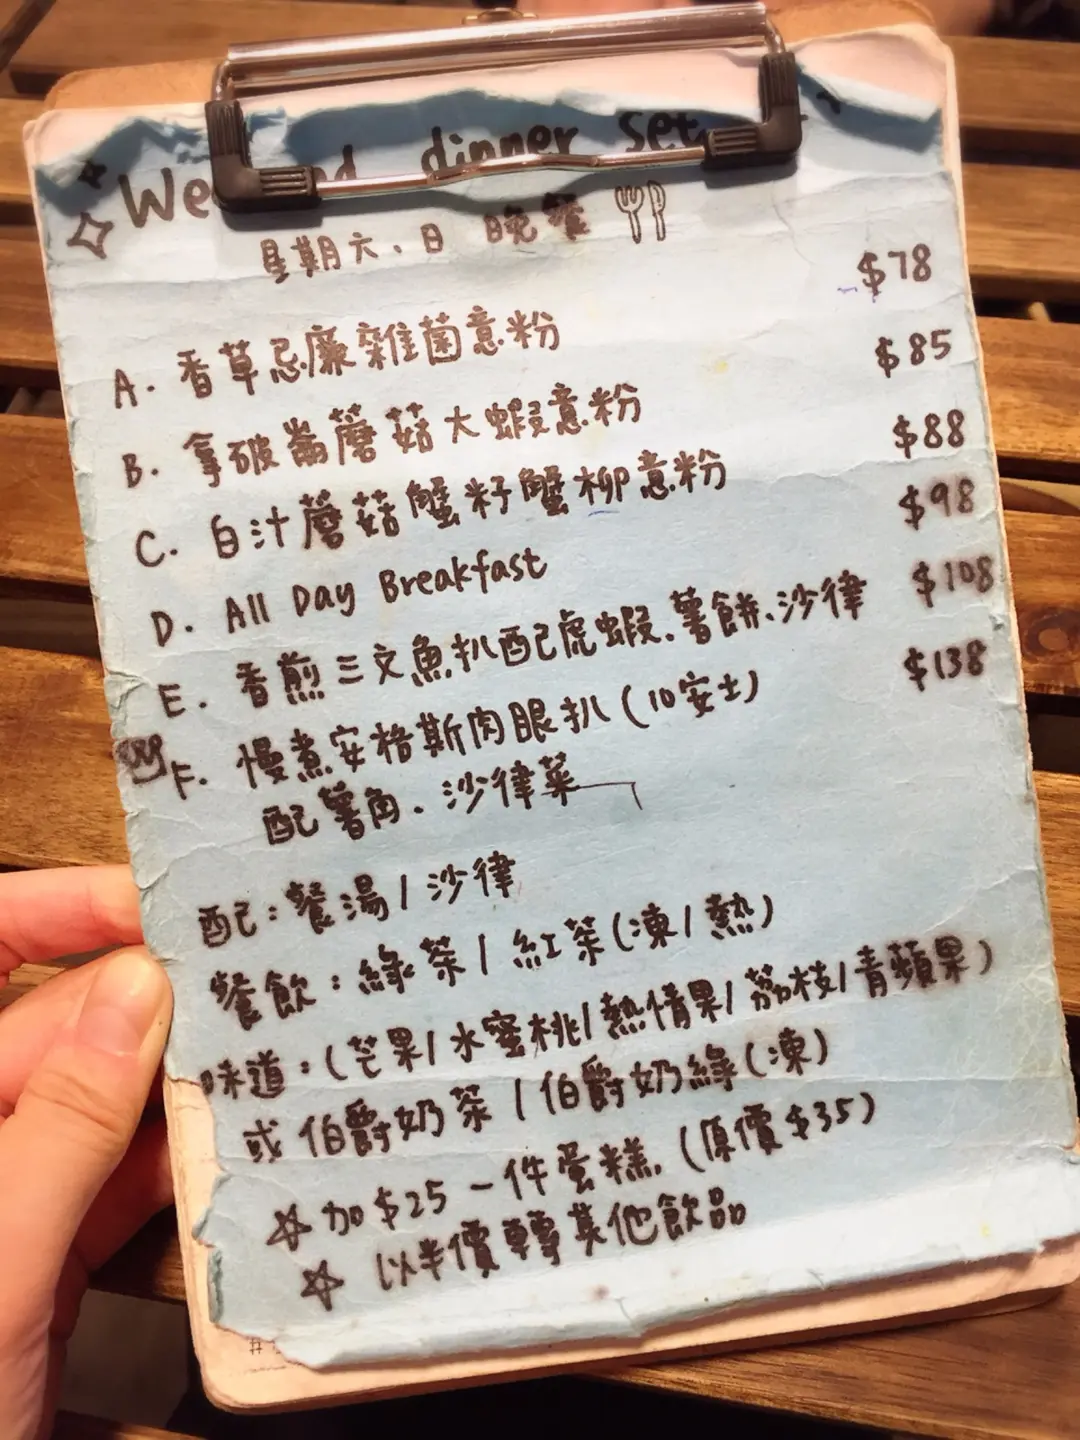 dinner set
星期六、日 晚餐
A. 香草忌廉雜菌意粉 $78
B. 拿破崙蘑菇大蝦意粉 $85
C. 白汁蘑菇蟹籽蟹柳意粉 $88
D. All Day Breakfast $98
E. 香煎三文魚扒配虎蝦、薯餅、沙律 $108
F. 慢煮安格斯肉眼扒(10安士) $138
配薯角、沙律菜
配:餐湯/沙律
餐飲:綠茶/紅茶(凍/熱)
味道:(芒果/水蜜桃/熱情果/荔枝/青蘋果)
或伯爵奶茶/伯爵奶綠(凍)
☆加$25 一件蛋糕.(原價$35)
☆ 以半價轉其他飲品